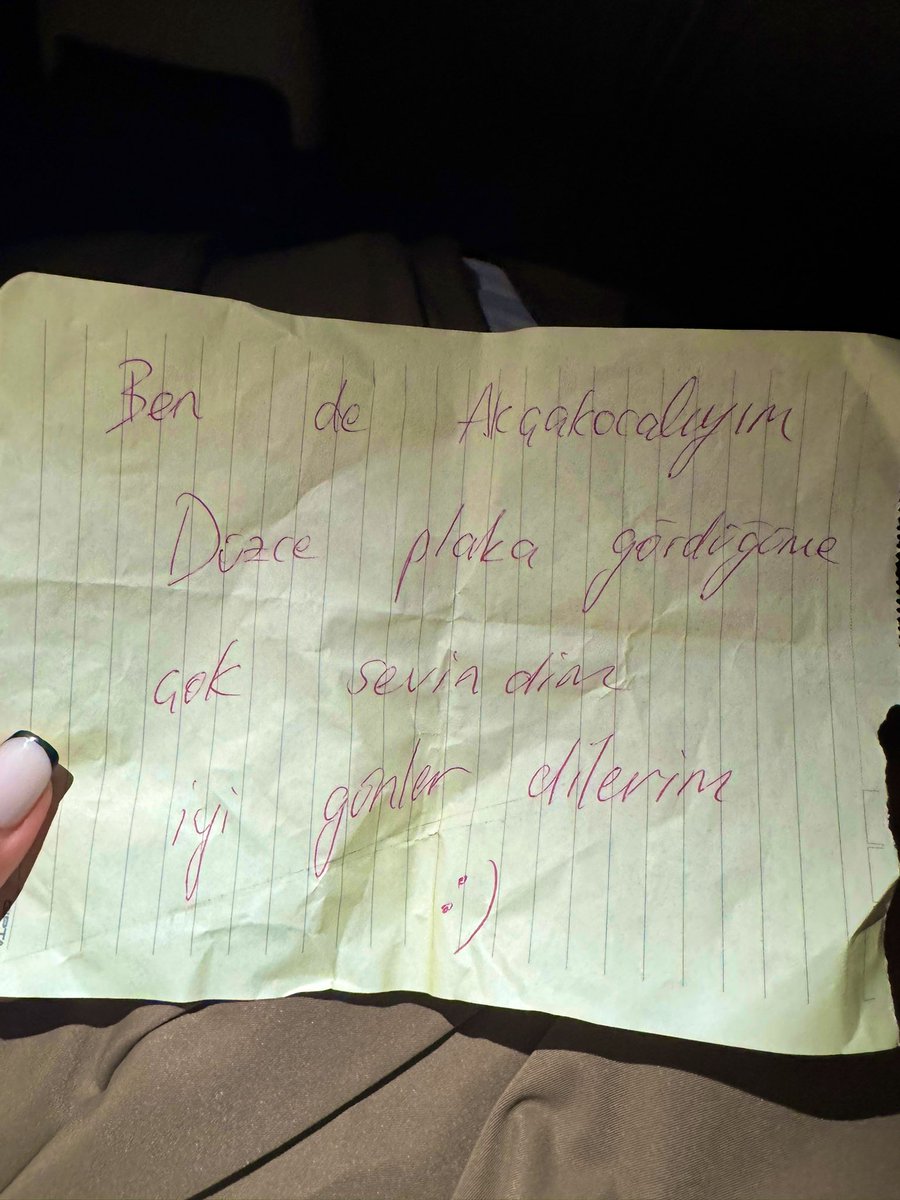 Ben de Akçakocalıyım
Düzce plaka gördüğüme
çok sevindim
iyi günler dilerim
:)